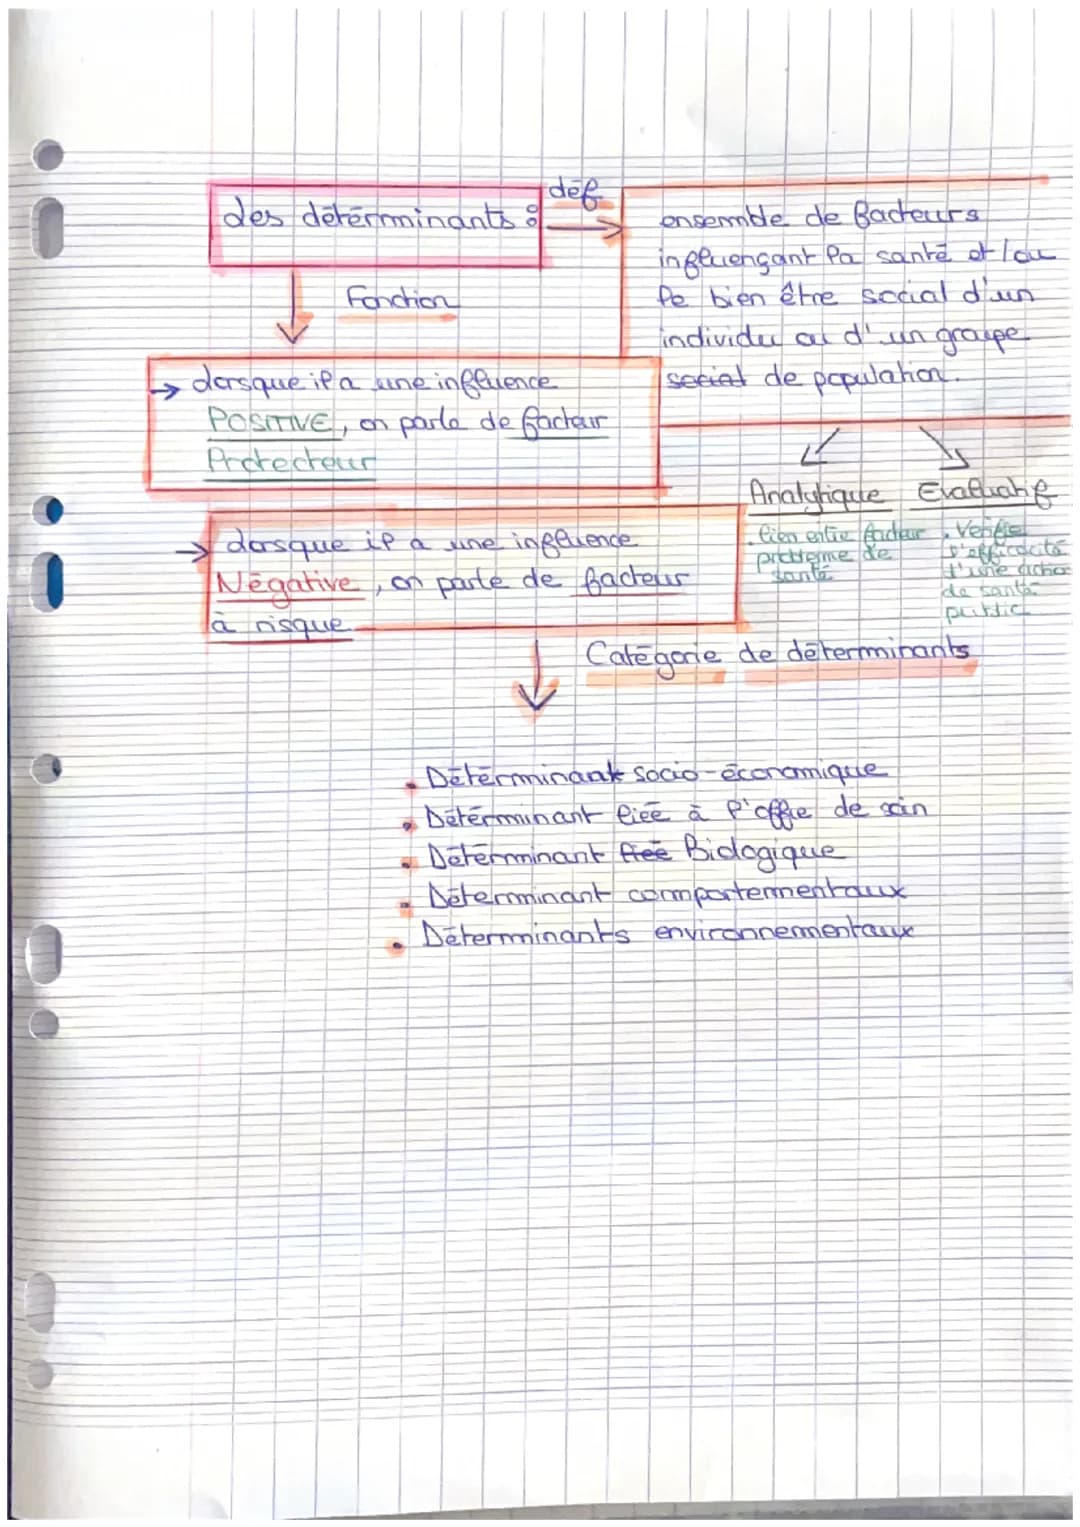 des détérminants :
déf
ensemble de facteurs
influençant la santé et/ou
le bien être social d'un
individu ou d'un groupe
social de population.
Fonction
→ lorsque il a une influence
POSITIVE, on parle de facteur
Protecteur
→ lorsque il a une influence
Négative, on parle de facteur
à risque.
Analytique
. lien entre facteur
problème de
santé
Evaluatif
. Vérifie
l'efficacité
d'une action
de santé
public
Catégorie de déterminants
• Détérminant socio-économique
• Détérminant liée à l'offre de soin
• Détérminant liée Biologique
• Déterminant comportementaux
• Déterminants environnementaux